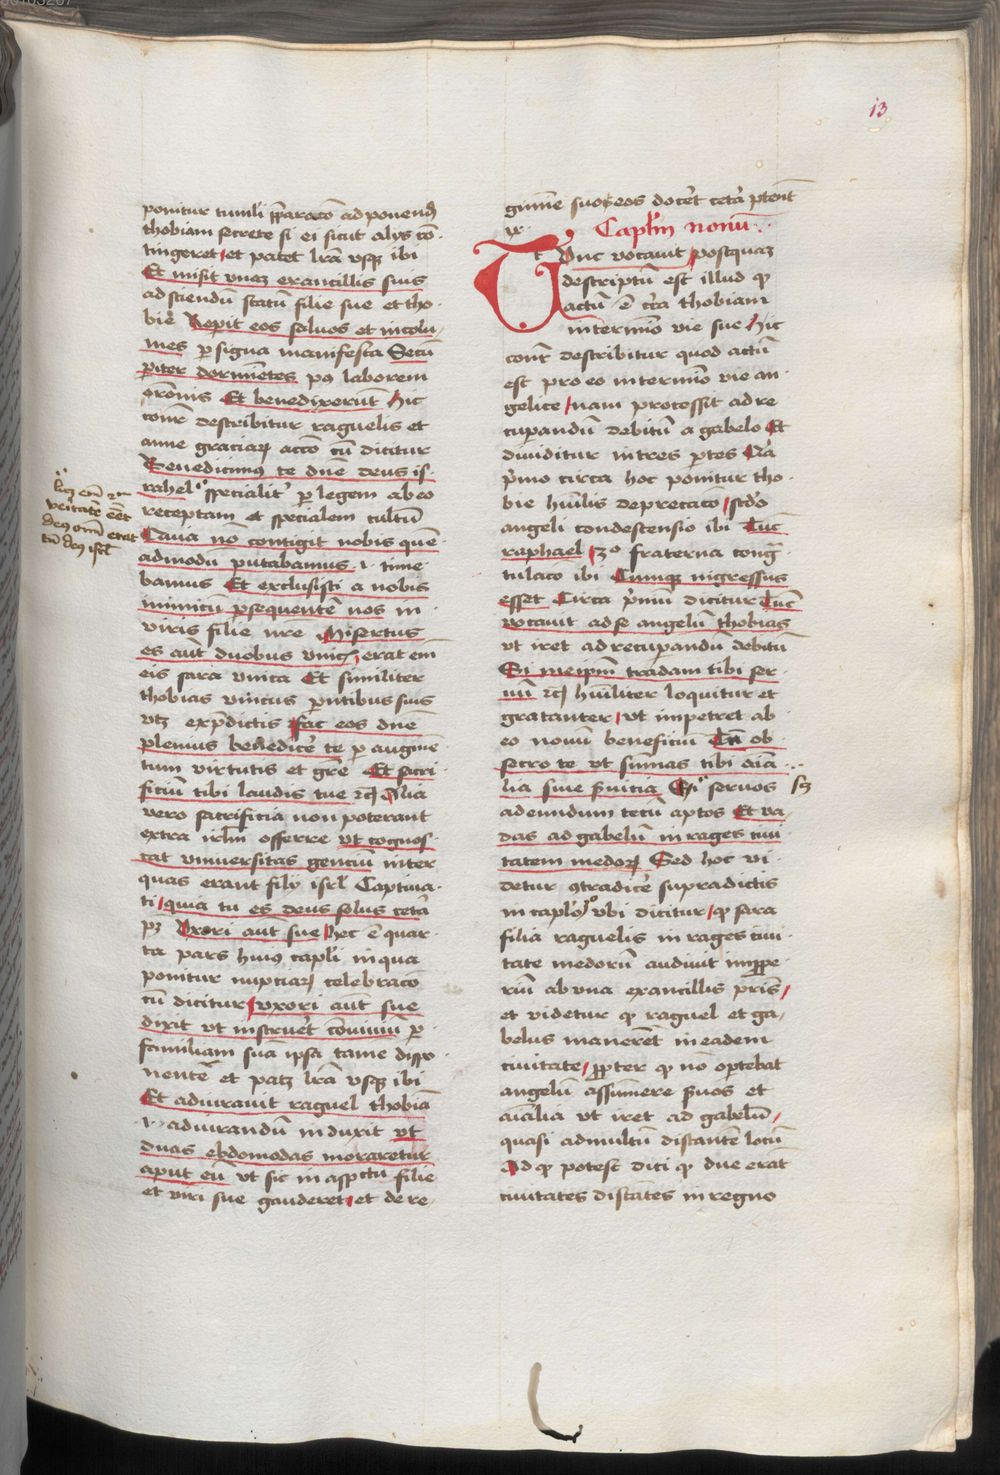 13
ponitur tumuli pparacō ad ponendū
thobiam secrete si ei sicut alijs cō-
tingeret / et patet lrā vsqȝ ibi
Et misit vnaȝ ex ancillis suis
ad sciendū statū filie sue et tho-
bie Reperit eos saluos et incolu-
mes p signa manifesta Secū
piter dormiētes pꝰ laborem
orōnis Et benedixerūt hic
cōnr describitur raguelis et
anne graciaꝝ accō cū dicitur
Benedicimꝰ te dne deus is-
rahel specialit p legem ab eo
receptam et specialem cultū
Causa nō contigit nobis quē
admodū putabamus .i. time-
bamus Et exclusisti a nobis
inimicū psequentē nos in
viris filie nre Misertus
es aūt duobus vnicꝭ / erat eni
eis sara vnica Et similiter
thobias vnicus parētibus suis
vtȝ expdictis fac eos dnē
plenius benedicē te p augmē-
tum virtutis et grē Et sacri-
ficiū tibi laudis tue rcꝭ Alia
vero sacrificia non poterant
extra irlm offerre vt cognos-
cat vniuersitas genciū inter
quas erant filij isrl Captiua-
ti / quia tu es deus solus cetā
pȝ Vxori aūt sue / hec ē quar-
ta pars huiꝰ capli in qua
ponitur nupciaꝝ celebracō
cū dicitur / vxori aūt sue
dixit vt instruēt cōuiuiū p
familiam suā ipsa tamē dispo-
nentē et patȝ lrā vsqȝ ibi
Et adiurauit raguel thobiā
.i. adiurandū induxit vt
duas ebdomodas moraretur
aput eū vt sic in aspctu filie
et viri sue gauderet / et de re-
lȝ eni in
veritate eēt
deꝰ omī erat
tn deꝰ isrl
gimine suo eos docēt cetā ptent
ix Caplm nonū
Tunc vocauit / postquaȝ
descriptū est illud qꝫ
actū ē circa thobiam
in termino vie sue / hic
conr describitur quod actū
est pro eo in termino vie an-
gelice / nam processit ad re-
cuperandū debitū a gabelo Et
diuiditur in tres ptes Nā
pmo circa hoc ponitur tho-
bie hūilis deprecacō / scdo
angeli condescensio ibi Tūc
raphael / 3º fraterna congra
tulacō ibi Cumqȝ ingressus
esset Circa pmū dicitur Tūc
vocauit ad se angelū thobias
vt iret ad recuperandū debitū
Si meipm tradam tibi ser-
uū rcꝭ hūiliter loquitur et
gratanter / vt impetret ab
eo nouū beneficiū Tn ob-
secro te vt sumas tibi aīa-
lia siue suicia Si seruos
ad eundum tecū aptos Et va-
das ad gabelū in rages ciui-
tatem medoꝝ Sed hoc vi-
detur ꝯtradicē supradictis
in caplo vbi dicitur / qꝫ sara
filia raguelis in rages ciui-
tate medorū audiuit imppe-
riū ab vna ex ancillis pris /
et videtur qꝫ raguel et ga-
belus manerēt in eadem
ciuitate / ppter qꝫ nō optebat
angelū assumere suos et
aīalia vt iret ad gabelū /
quasi ad multū distantē locū
Ad qꝫ potest dici qꝫ due erāt
ciuitates distātes in regno